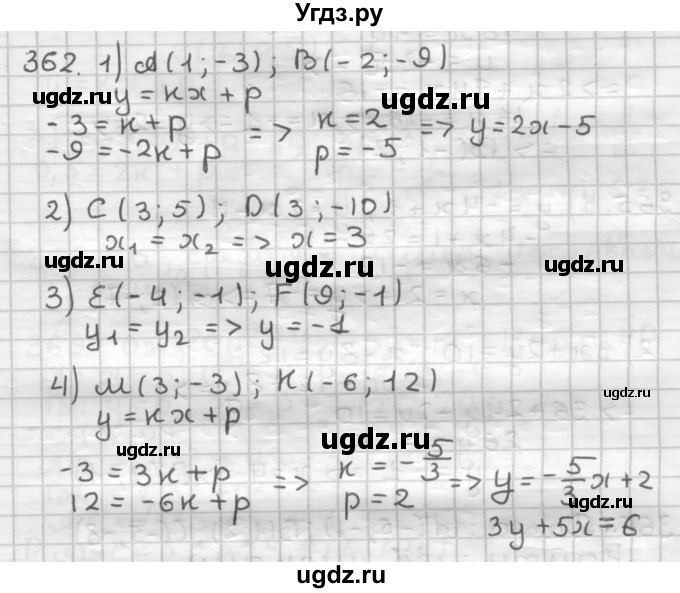 Угдз.ру
362. 1) A(1;-3); B(-2;-9)
ugdz.ru y = кx + p ugdz.ru
-3 = к + p => к = 2 => y = 2x - 5
-9 = -2к + p p = -5
2) C(3;5); D(3;-10)
x₁ = x₂ => x = 3
ugdz.ru ugdz.ru
3) E(-4;-1); F(9;-1)
y₁ = y₂ => y = -1
4) M(3;-3); K(-6;12)
y = кx + p ugdz.ru
ugdz.ru ugdz.ru
-3 = 3к + p => к = -5/3 => y = -5/3x + 2
12 = -6к + p p = 2
ugdz.ru
3y + 5x = 6
ugdz.ru